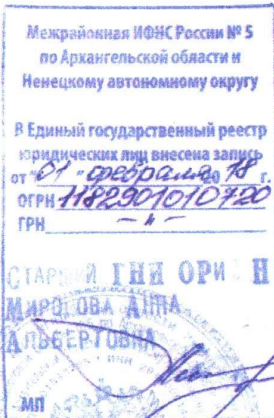 Межрайонная ИФНС России № 5
по Архангельской области и
Ненецкому автономному округу
В Единый государственный реестр
юридических лиц внесена запись
от "01" февраля 20 18 г.
ОГРН 1182901010720
ГРН —"—
СТАРШИЙ ГНИ ОРИ Н
МИРОНОВА АННА
АЛЬБЕРТОВНА
МП